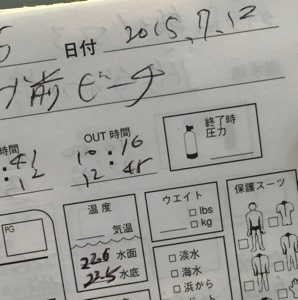 5 日付 2015.7.12
前ビーチ
時間 OUT 時間 終了時
:41 10:16 圧力
:12 12:45
PG 温度 ウエイト 保護スーツ
気温 lbs
kg
22.6 水面
22.5 水底 淡水
海水
浜から